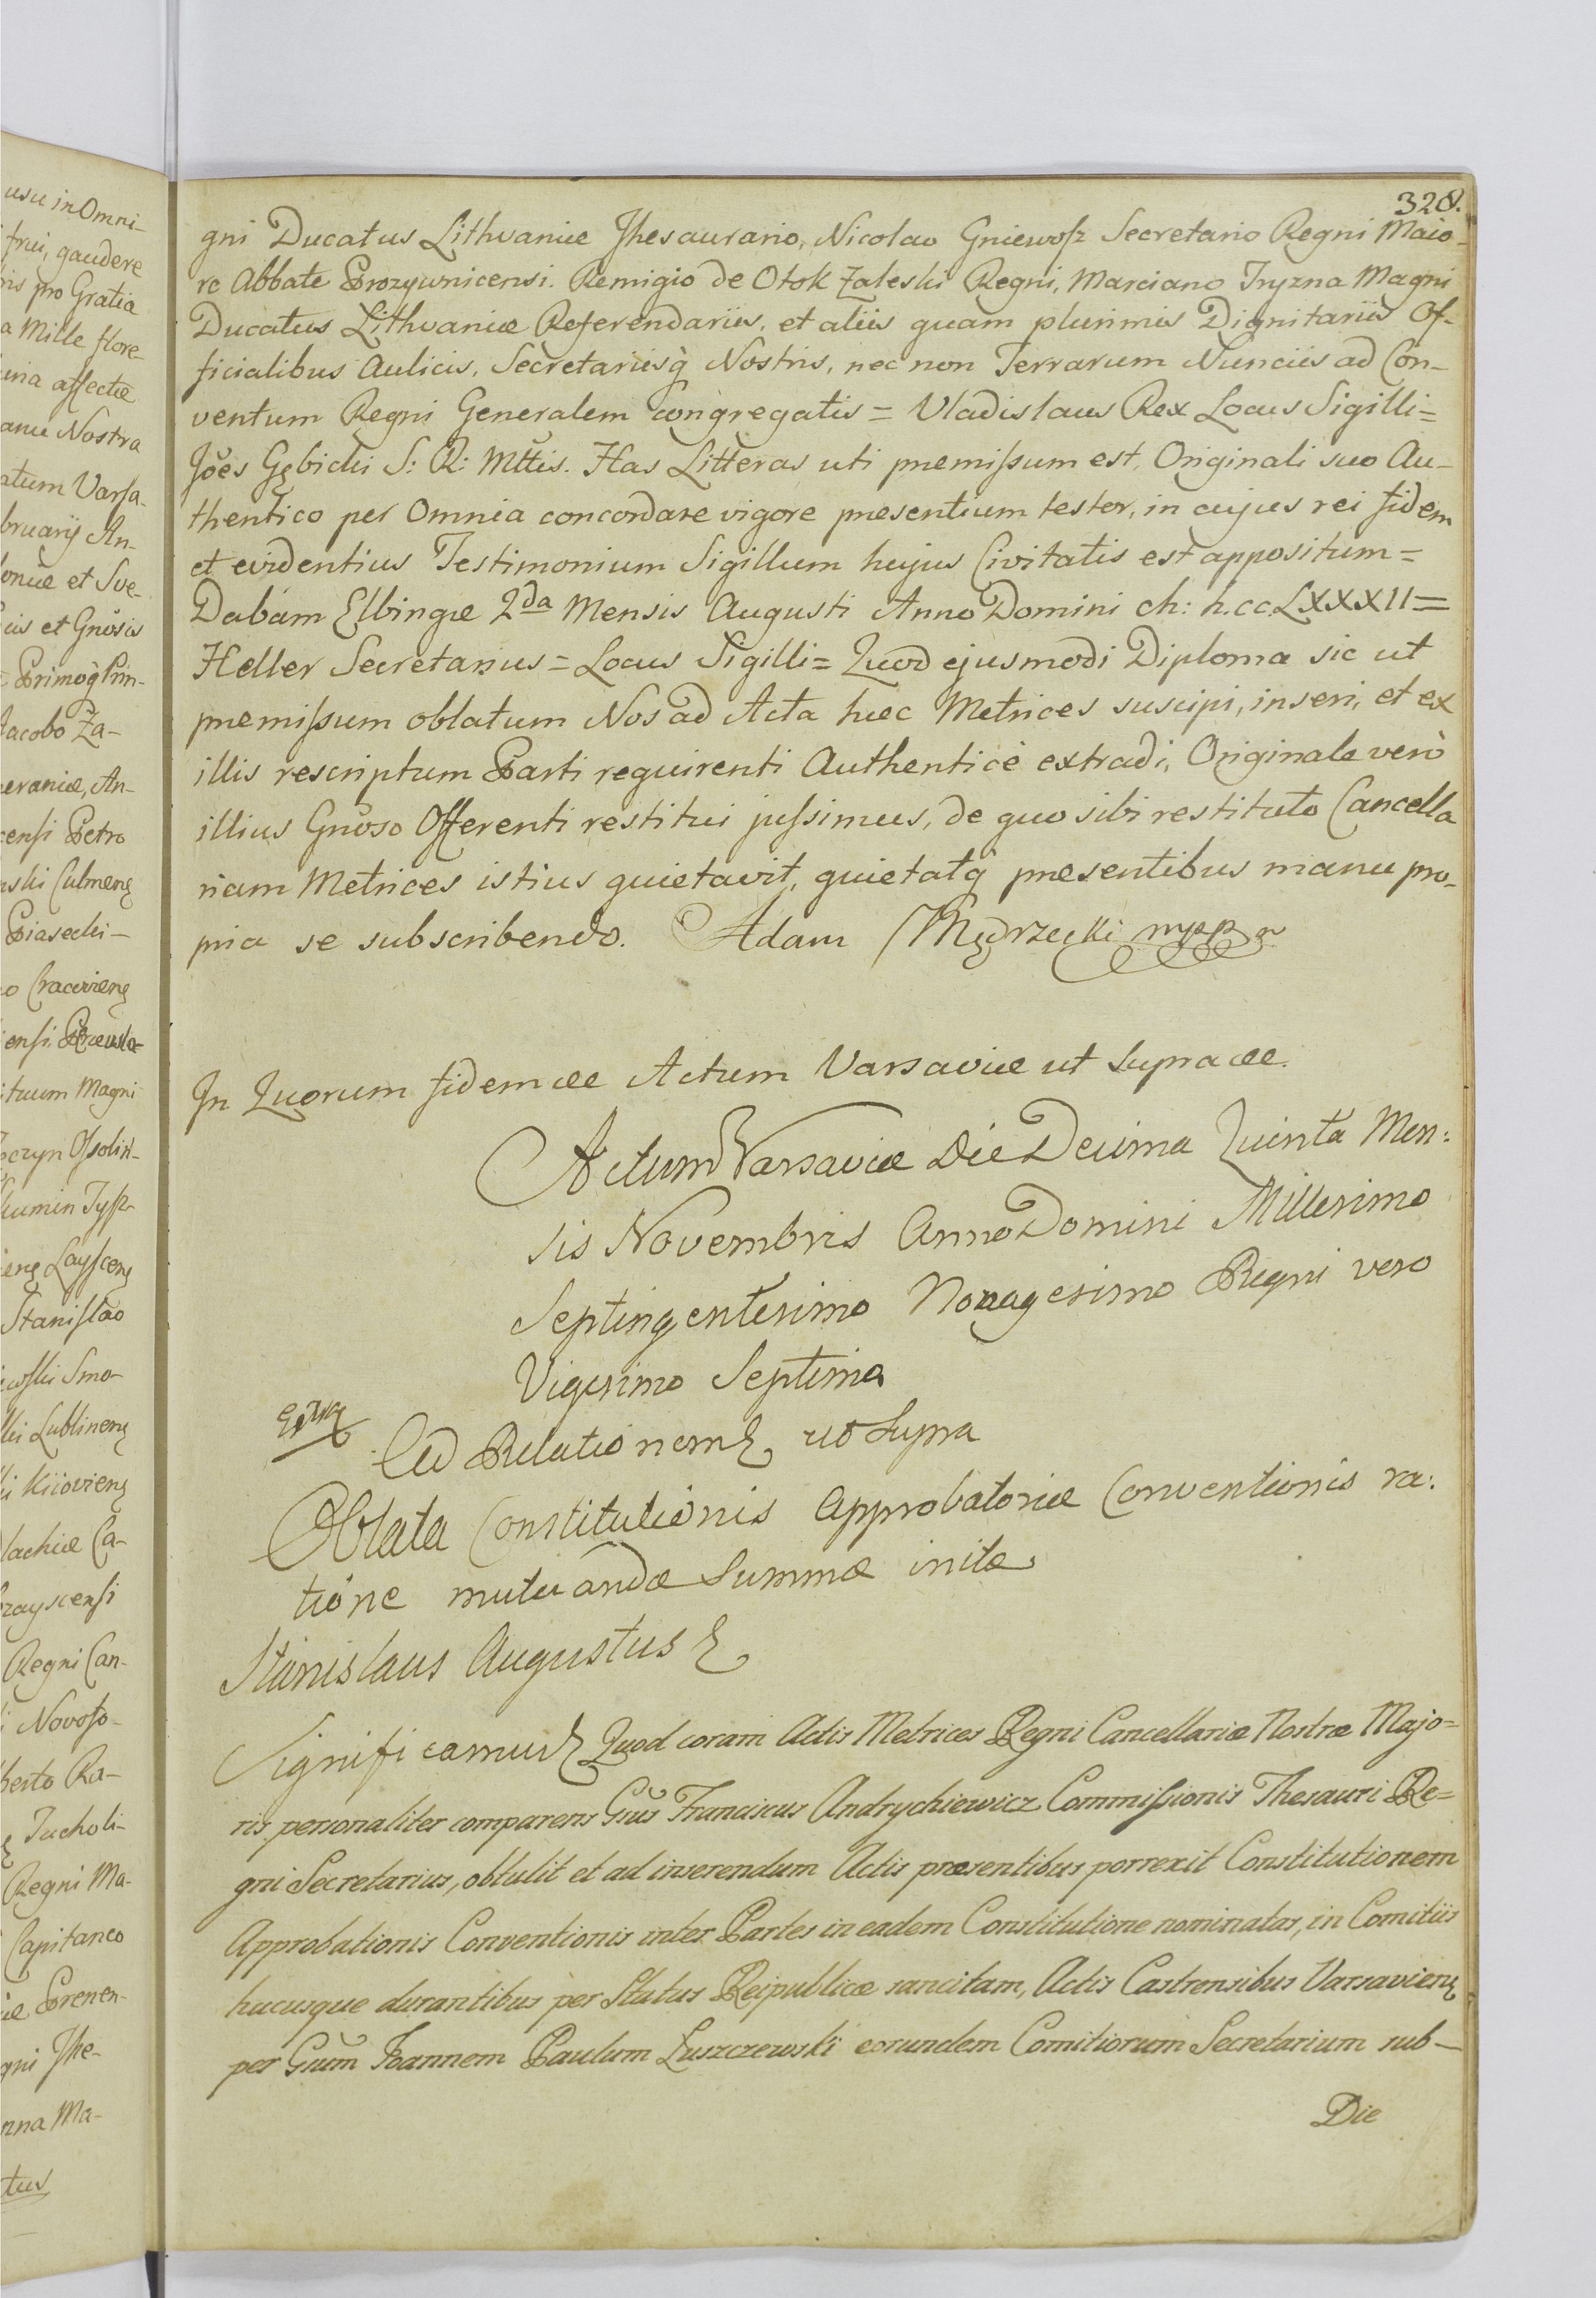 usu in Omni-
frui, gaudere
ris pro Gratia
a Mille flore-
anu Nostra
atum Varsa-
bruarij An-
loniæ et Sve-
cis et Gnosis
Primoq̀ Prin-
Jacobo Za-
eraniæ, An-
censi Petro
nski Culmens
Piasecki-
o Cracoviens
ensi
ituum Magni
eczyn Ossolin-
iens Laysceng
Stanislao
Smo-
lki Lublinens
ki Kijoviens
lachiæ Ca-
rayscensi
Regni Can-
i Novoso-
berto Ra-
s Tucholi-
Regni Ma-
Capitaneo
iæ Prenen-
gni The-
nna Ma-
tus
328.
gni Ducatus Lithvaniæ Thesaurario, Nicolao Gniewosz Secretario Regni Maio-
re Abbate Prozywnicensi. Remigio de Otok Zaleski Regni, Marciano Tryzna Magni
Ducatus Lithvaniæ Referendariis, et aliis quam plurimis Dignitariis Of-
ficialibus Aulicis, Secretariisq̀ Nostris, nec non Terrarum Nunciis ad Con-
ventum Regni Generalem congregatis = Vladislaus Rex Locus Sigilli =
Jões Gębicki S: R: Mttis. Has Litteras uti præmissum est, Originali suo Au-
thentico per Omnia concordare vigore præsentium testor, in cujus rei fidem
et evidentius Testimonium Sigillum hujus Civitatis est appositum =
Dabam Elbingæ 2da Mensis Augusti Anno Domini ch: h.cc.LXXXII =
Heller Secretarius = Locus Sigilli = Quod ejusmodi Diploma sic ut
præmissum oblatum Nos ad Acta hæc Metrices suscipi, inseri, et ex
illis rescriptum Parti requirenti Authenticè extradi, Originale verò
illius Gnoso Offerenti restitui jussimus, de quo sibi restituto Cancella
riam Metrices istius quietavit, quietatq̀ præsentibus manu pro-
pria se subscribendo. Adam Mędrzecki mpp
In Quorum fidem &c Actum Varsaviæ ut supra &c.
Actum Varsaviæ Die Decima Quinta Men:
sis Novembris Anno Domini Millesimo
Septingentesimo Nonagesimo Regni vero
Vigesimo Septimo
Ad Relationem ut supra
Oblata Constitutionis Approbatoriæ Conventionis ra:
tione mutuandæ Summæ initæ
Stanislaus Augustus
Significamus Quod coram Actis Metrices Regni Cancellariæ Nostræ Majo=
ris personaliter comparens Gũs Franciscus Andrychiewicz Commissionis Thesauri Re=
gni Secretarius, obtulit et ad inserendum Actis præsentibus porrexit Constitutionem
Approbationis Conventionis inter Partes in eadem Constitutione nominatas, in Comitiis
hucusque durantibus per Status Reipublicæ sancitam, Actis Castrensibus Varsaviens
per Gũm Joannem Paulum Łuszczewski eorundem Comitiorum Secretarium sub-
Die